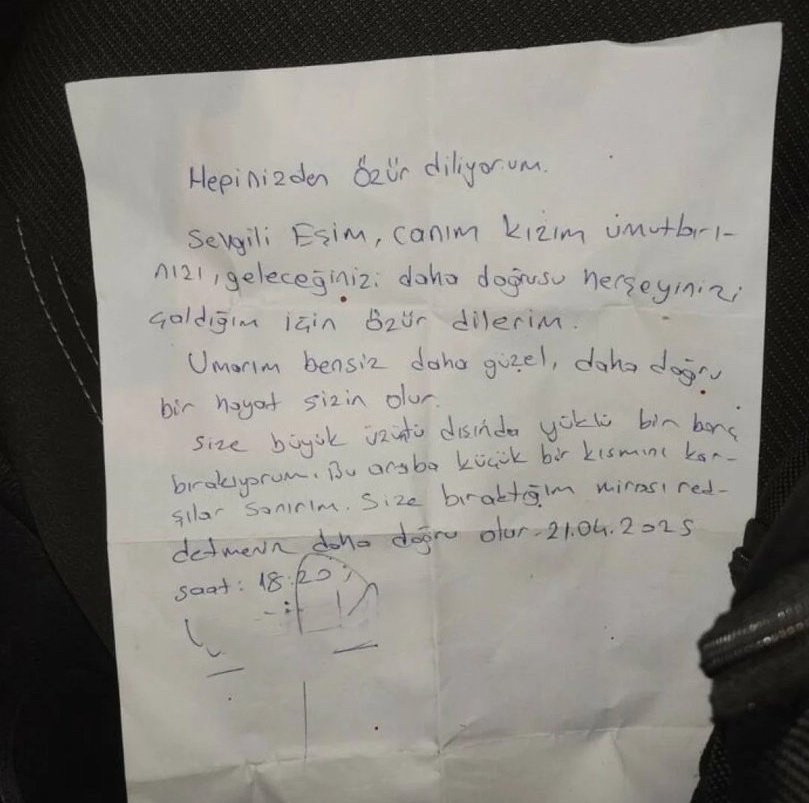 Hepinizden özür diliyorum.
Sevgili Eşim, canım kızım ümutbırı-
nızı, geleceğinizi daha doğrusu herşeyinizi
çaldığım için özür dilerim.
Umarım bensiz daha güzel, daha doğru
bir hayat sizin olur.
Size büyük üzüntü dışında yüklü bir borç
bırakıyorum. Bu araba küçük bir kısmını kar-
şılar sanırım. Size bıraktığım mirası red-
detmeniz daha doğru olur. 21.04.2025
saat: 18:20